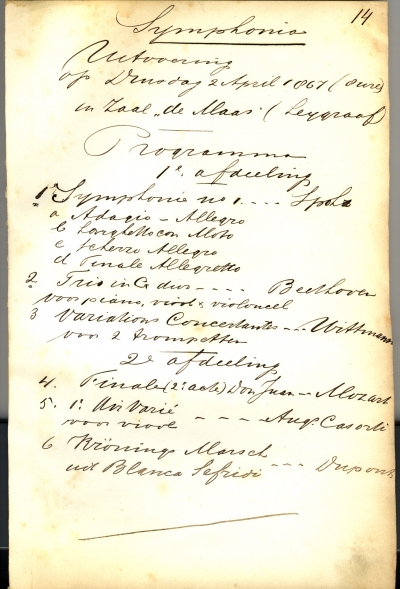 14
Symphonia
Uitvoering
op Dinsdag 2 April 1867 (8 ure)
in Zaal „de Maas" (Leygraaf)
Programma
1e. afdeeling
1e Symphonie no 1. ---- Spohr
a Adagio - Allegro
b Larghetto con Moto
c Scherzo Allegro
d Finale Allegretto
2 Trio in G dur ---- Beethoven
voor piano, viool & violoncel
3 Variations Concertantes --- Wittmann
voor 2 trompetten
2e afdeeling
4. Finale (2e acte) Don Juan -- Mozart
5. 1e Air Varié
voor viool ---- Aug. Casorti
6 Krönings Marsch
uit Blanca --- Dupont